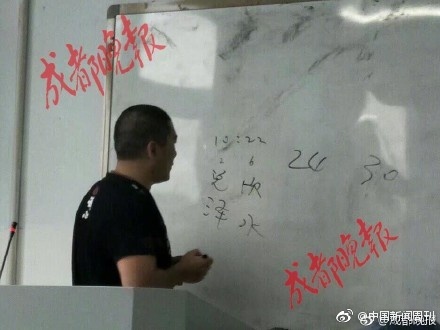 成都晚报
10:22
6 6
兑 水
泽 水
24 30
成都晚报
@中国新闻周刊
@成都晚报